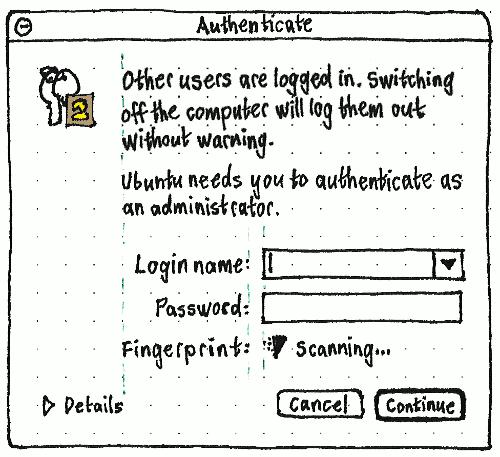 Authenticate
Other users are logged in. Switching
off the computer will log them out
without warning.
Ubuntu needs you to authenticate as
an administrator.
Login name:
Password:
Fingerprint: Scanning...
Details
Cancel
Continue